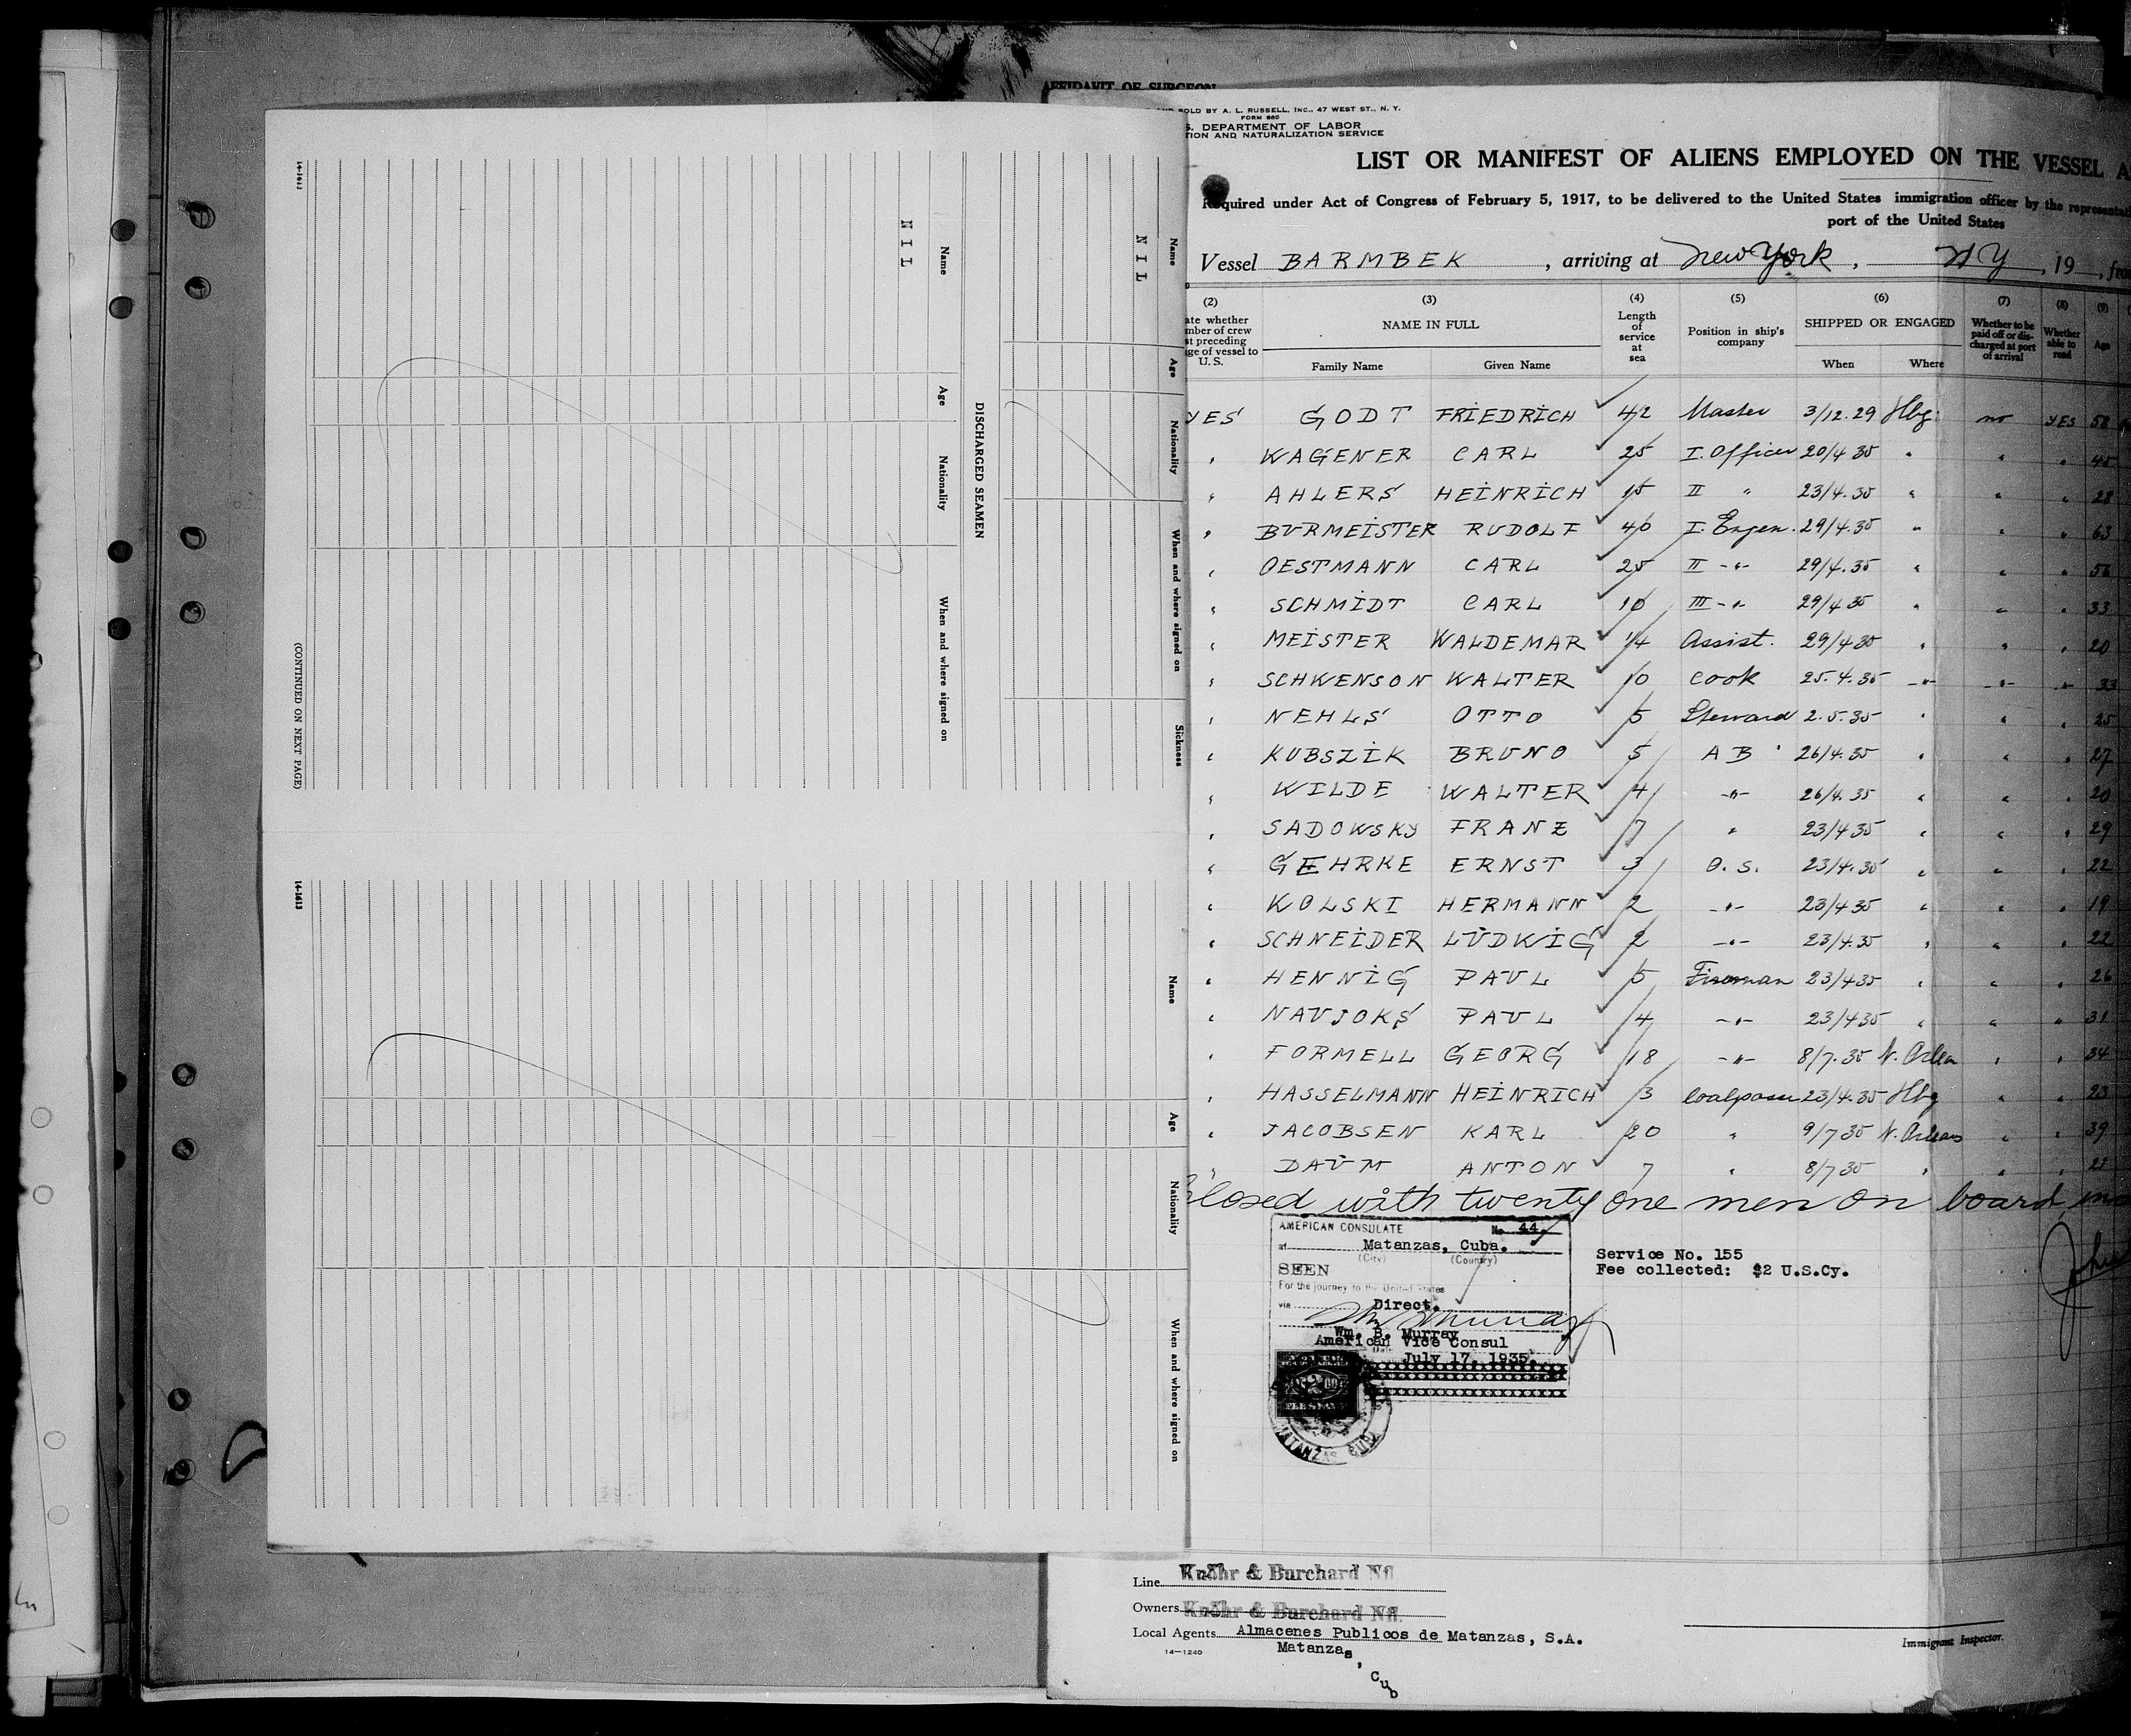 AFFIDAVIT OF SURGEON
14-1613
NIL
Name
Age
Nationality
When and where signed on
Sickness
DISCHARGED SEAMEN
NIL
Name
Age
Nationality
When and where signed on
(CONTINUED ON NEXT PAGE)
14-1613
Name
Age
Nationality
When and where signed on
SOLD BY A. L. RUSSELL, INC., 47 WEST ST., N. Y.
FORM 680
S. DEPARTMENT OF LABOR
TION AND NATURALIZATION SERVICE
LIST OR MANIFEST OF ALIENS EMPLOYED ON THE VESSEL A
Required under Act of Congress of February 5, 1917, to be delivered to the United States immigration officer by the representati
port of the United States
Vessel BARMBEK , arriving at New York , NY , 19 , fro
(2) (3) (4) (5) (6) (7) (8) (9)
ate whether
mber of crew
st preceding
ge of vessel to
U. S.
NAME IN FULL
Family Name Given Name
Length
of
service
at
sea
Position in ship's
company
SHIPPED OR ENGAGED
When Where
Whether to be
paid off or dis-
charged at port
of arrival
Whether
able to
read
Age
YES GODT FRIEDRICH 42 Master 3/12.29 Hbg. no YES 58
" WAGENER CARL 25 I. Officer 20/4 35 " " " 45
" AHLERS HEINRICH 15 II " 23/4.35 " " " 28
" BURMEISTER RUDOLF 40 I. Engen. 29/4.35 " " " 63
" OESTMANN CARL 25 II -"- 29/4.35 " " " 56
" SCHMIDT CARL 10 III -"- 29/4 35 " " " 33
" MEISTER WALDEMAR 1/4 Assist. 29/4 35 " " " 20
" SCHWENSON WALTER 10 Cook 25.4.35 -"- -"- -"- 33
" NEHLS OTTO 5 Steward 2.5.35 " " " 25
" KUBSZIK BRUNO 5 AB 26/4.35 " " " 27
" WILDE WALTER 4 -"- 26/4.35 " " " 20
" SADOWSKY FRANZ 7 " 23/4 35 " " " 29
" GEHRKE ERNST 3 O.S. 23/4.35 " " " 22
" KOLSKI HERMANN 2 -"- 23/4 35 " " " 19
" SCHNEIDER LŪDWIG 2 -"- 23/4.35 " " " 22
" HENNIG PAUL 5 Fireman 23/4 35 " " " 26
" NAUJOKS PAUL 4 -"- 23/4 35 " " " 31
" FORMELL GEORG 18 -"- 8/7.35 N. Orlea " " 34
" HASSELMANN HEINRICH 3 Coalpasser 23/4.35 Hbg " " 23
" JACOBSEN KARL 20 " 9/7 35 N. Orleans " " 39
" DAŪM ANTON 7 " 8/7 35 " " "
Closed with twenty one men on board, inc
AMERICAN CONSULATE No. 44
at Matanzas, Cuba.
(City) (Country)
SEEN
For the journey to the United States
via Direct.
Wm. B. Murray
American Vice Consul
Date July 17, 1935.
MATANZAS CUBA
Service No. 155
Fee collected: $2 U.S.Cy.
Line Knöhr & Burchard Nfl
Owners Knöhr & Burchard Nfl.
Local Agents Almacenes Publicos de Matanzas, S.A.
14-1240
Matanzas, Cub
Immigrant Inspector.